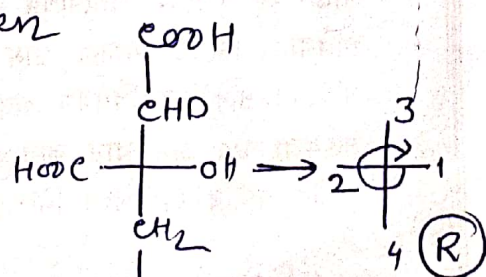 en
COOH
CHD
HOOC OH → 3 2 1 4
CH2
R